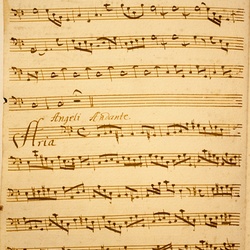 Angeli Andante
Aria